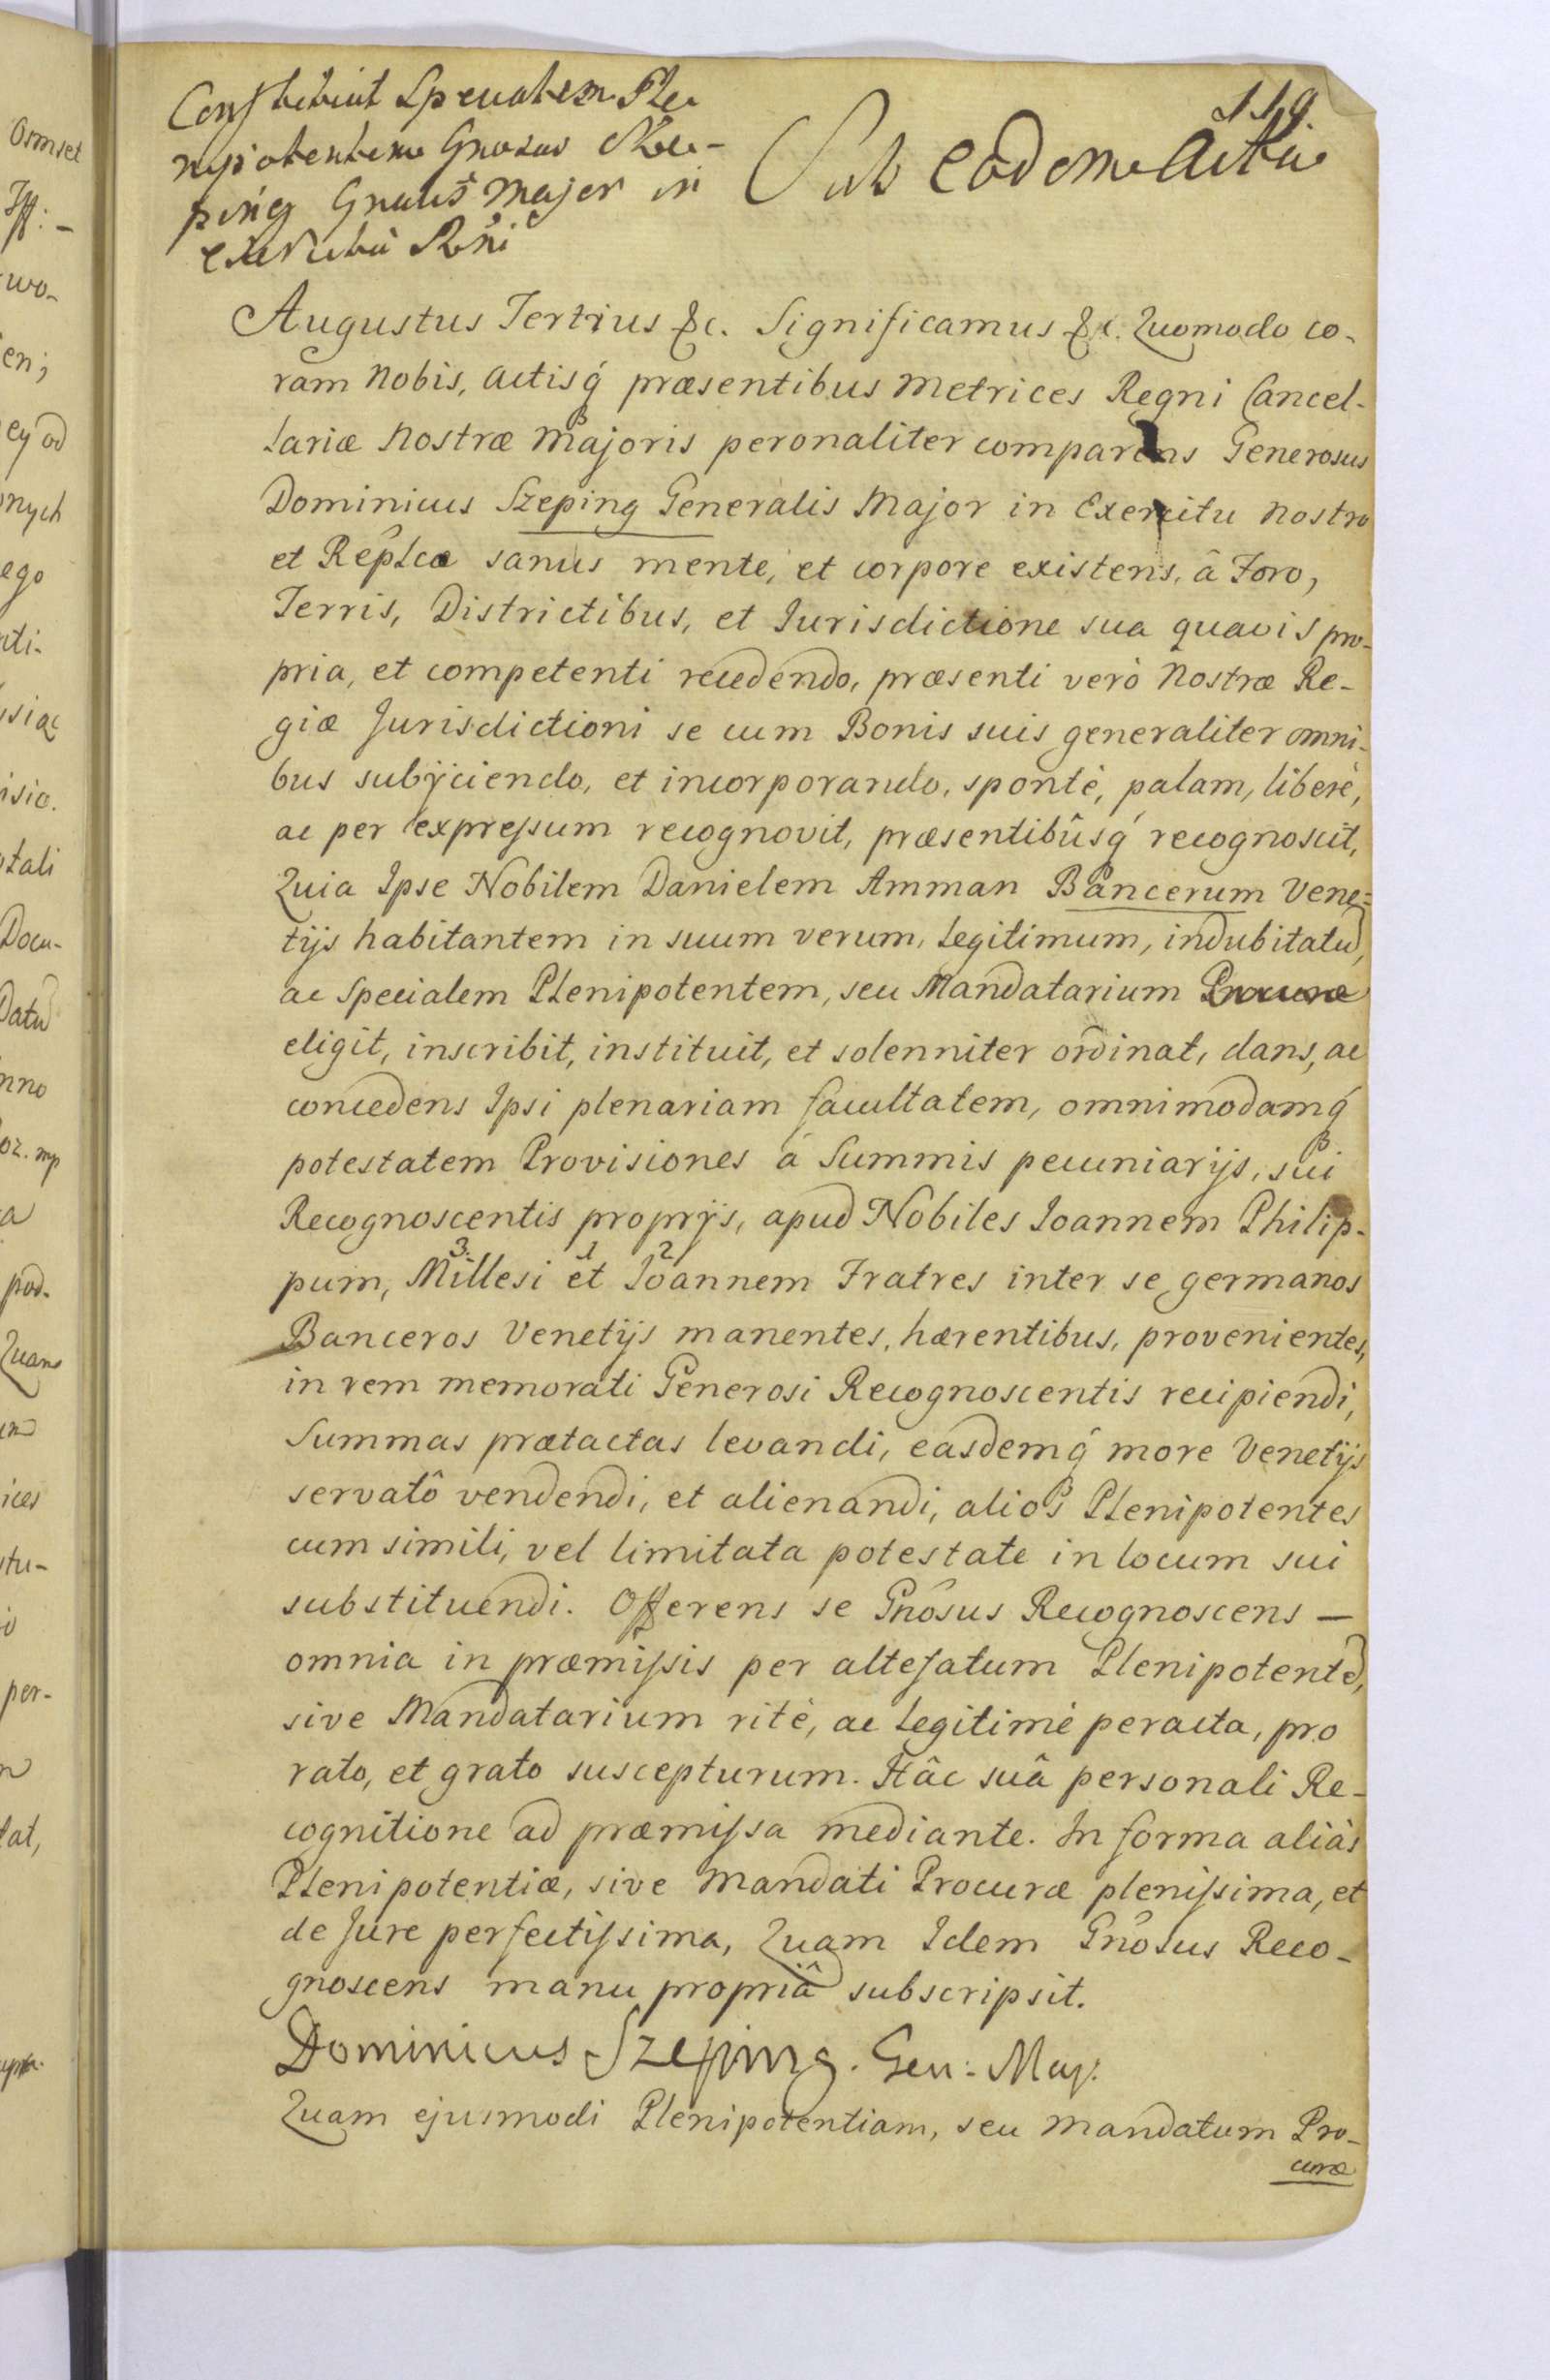 119.
Constituit Specialem Ple-
nipotentem Gnosus Sze-
ping Gnalis Major in
exercitu Rni
Sub eodem Actu
Augustus Tertius &c. Significamus &c. Quomodo co-
ram Nobis, Actisq́ præsentibus Metrices Regni Cancel-
lariæ Nostræ Majoris peronaliter comparens Generosus
Dominicus Szeping Generalis Major in Exercitu Nostro
et Replcæ sanus mente, et corpore existens, â Foro,
Terris, Districtibus, et Iurisdictione sua quavis pro-
pria, et competenti recedendo, præsenti verò Nostræ Re-
giæ Jurisdictioni se cum Bonis suis generaliter omni-
bus subÿciendo, et incorporando, spontè, palam, liberè,
ac per expressum recognovit, præsentibûsq́ recognoscit,
Quia Ipse Nobilem Danielem Amman Bancerum Vene=
tijs habitantem in suum verum, legitimum, indubitatũ,
ac Specialem Plenipotentem, seu Mandatarium Procuræ
eligit, inscribit, instituit, et solenniter ordinat, dans, ac
concedens Ipsi plenariam facultatem, omnimodamq́
potestatem Provisiones á Summis pecuniarijs, sui
Recognoscentis proprÿs, apud Nobiles Ioannem Philip-
pum, Millesi et Ioannem Fratres inter se germanos
3. 1 2
Banceros Venetijs manentes, hærentibus, provenientes,
in rem memorati Generosi Recognoscentis recipiendi,
Summas prætactas levandi, easdemq́ more Venetijs
servatô vendendi, et alienandi, alios Plenipotentes
cum simili, vel limitata potestate in locum sui
substituendi. Offerens se Gnôsus Recognoscens —
omnia in præmissis per altefatum Plenipotentẽ,
sive Mandatarium ritè, ac legitimè peracta, pro
rato, et grato suscepturum. Hâc suâ personali Re-
cognitione ad præmissa mediante. In forma aliàs
Plenipotentiæ, sive Mandati Procuræ plenissima, et
de Jure perfectissima, Quam Idem Gnôsus Reco-
gnoscens manu propriâ subscripsit.
Dominicus Szeping. Gen: May:
Quam ejusmodi Plenipotentiam, seu Mandatum Pro-
curæ